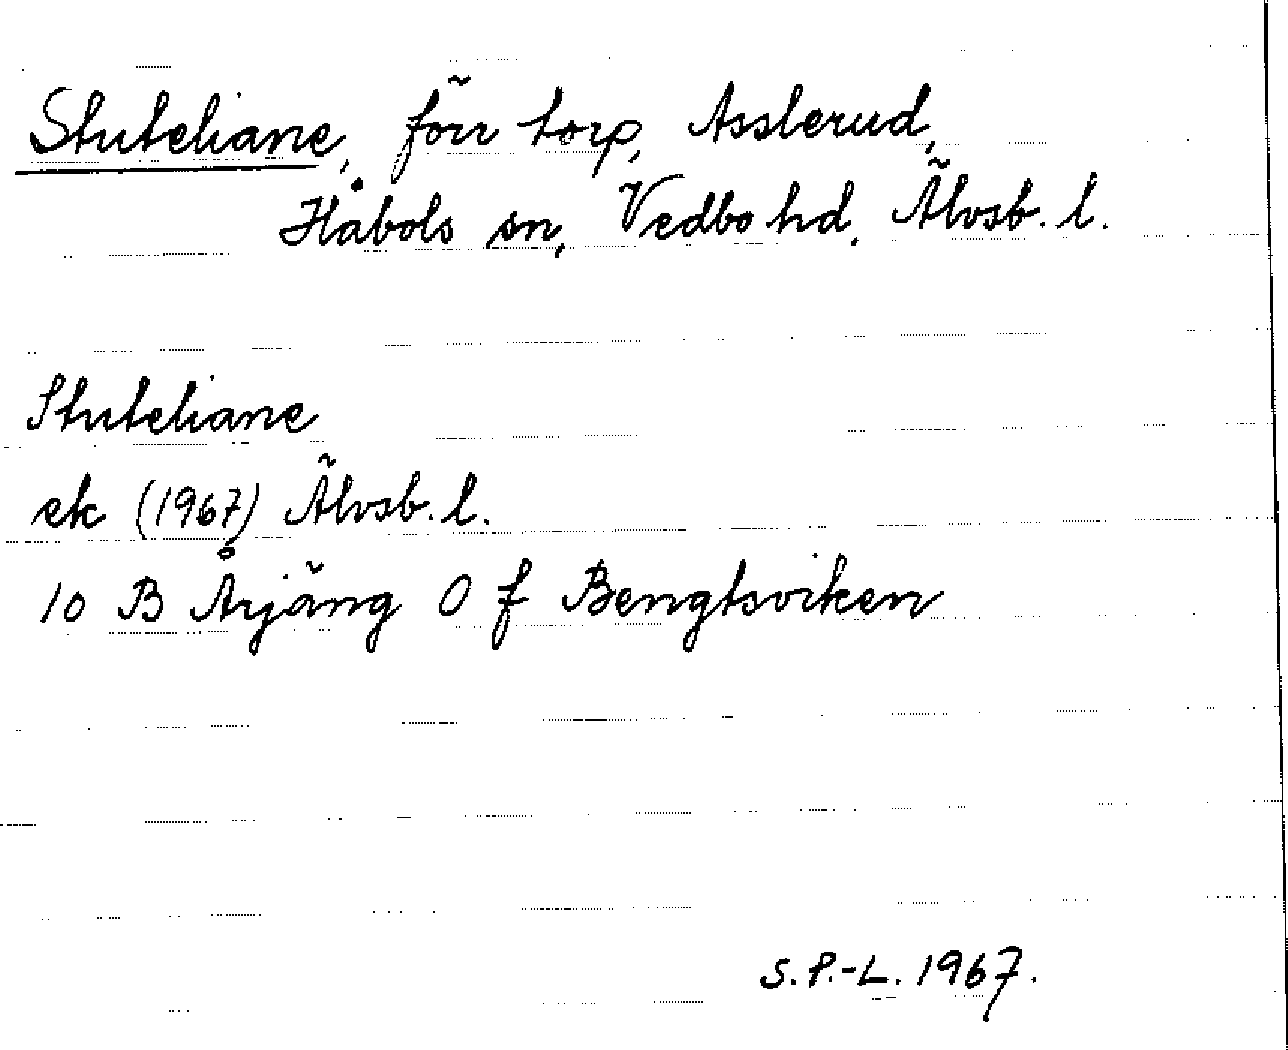 Stuteliane, förr torp, Asslerud,
Håbols sn, Vedbo hd, Älvsb. l.
Stuteliane
ek (1967) Älvsb. l.
10 B Årjäng O f Bengtsviken
S.P.-L. 1967.